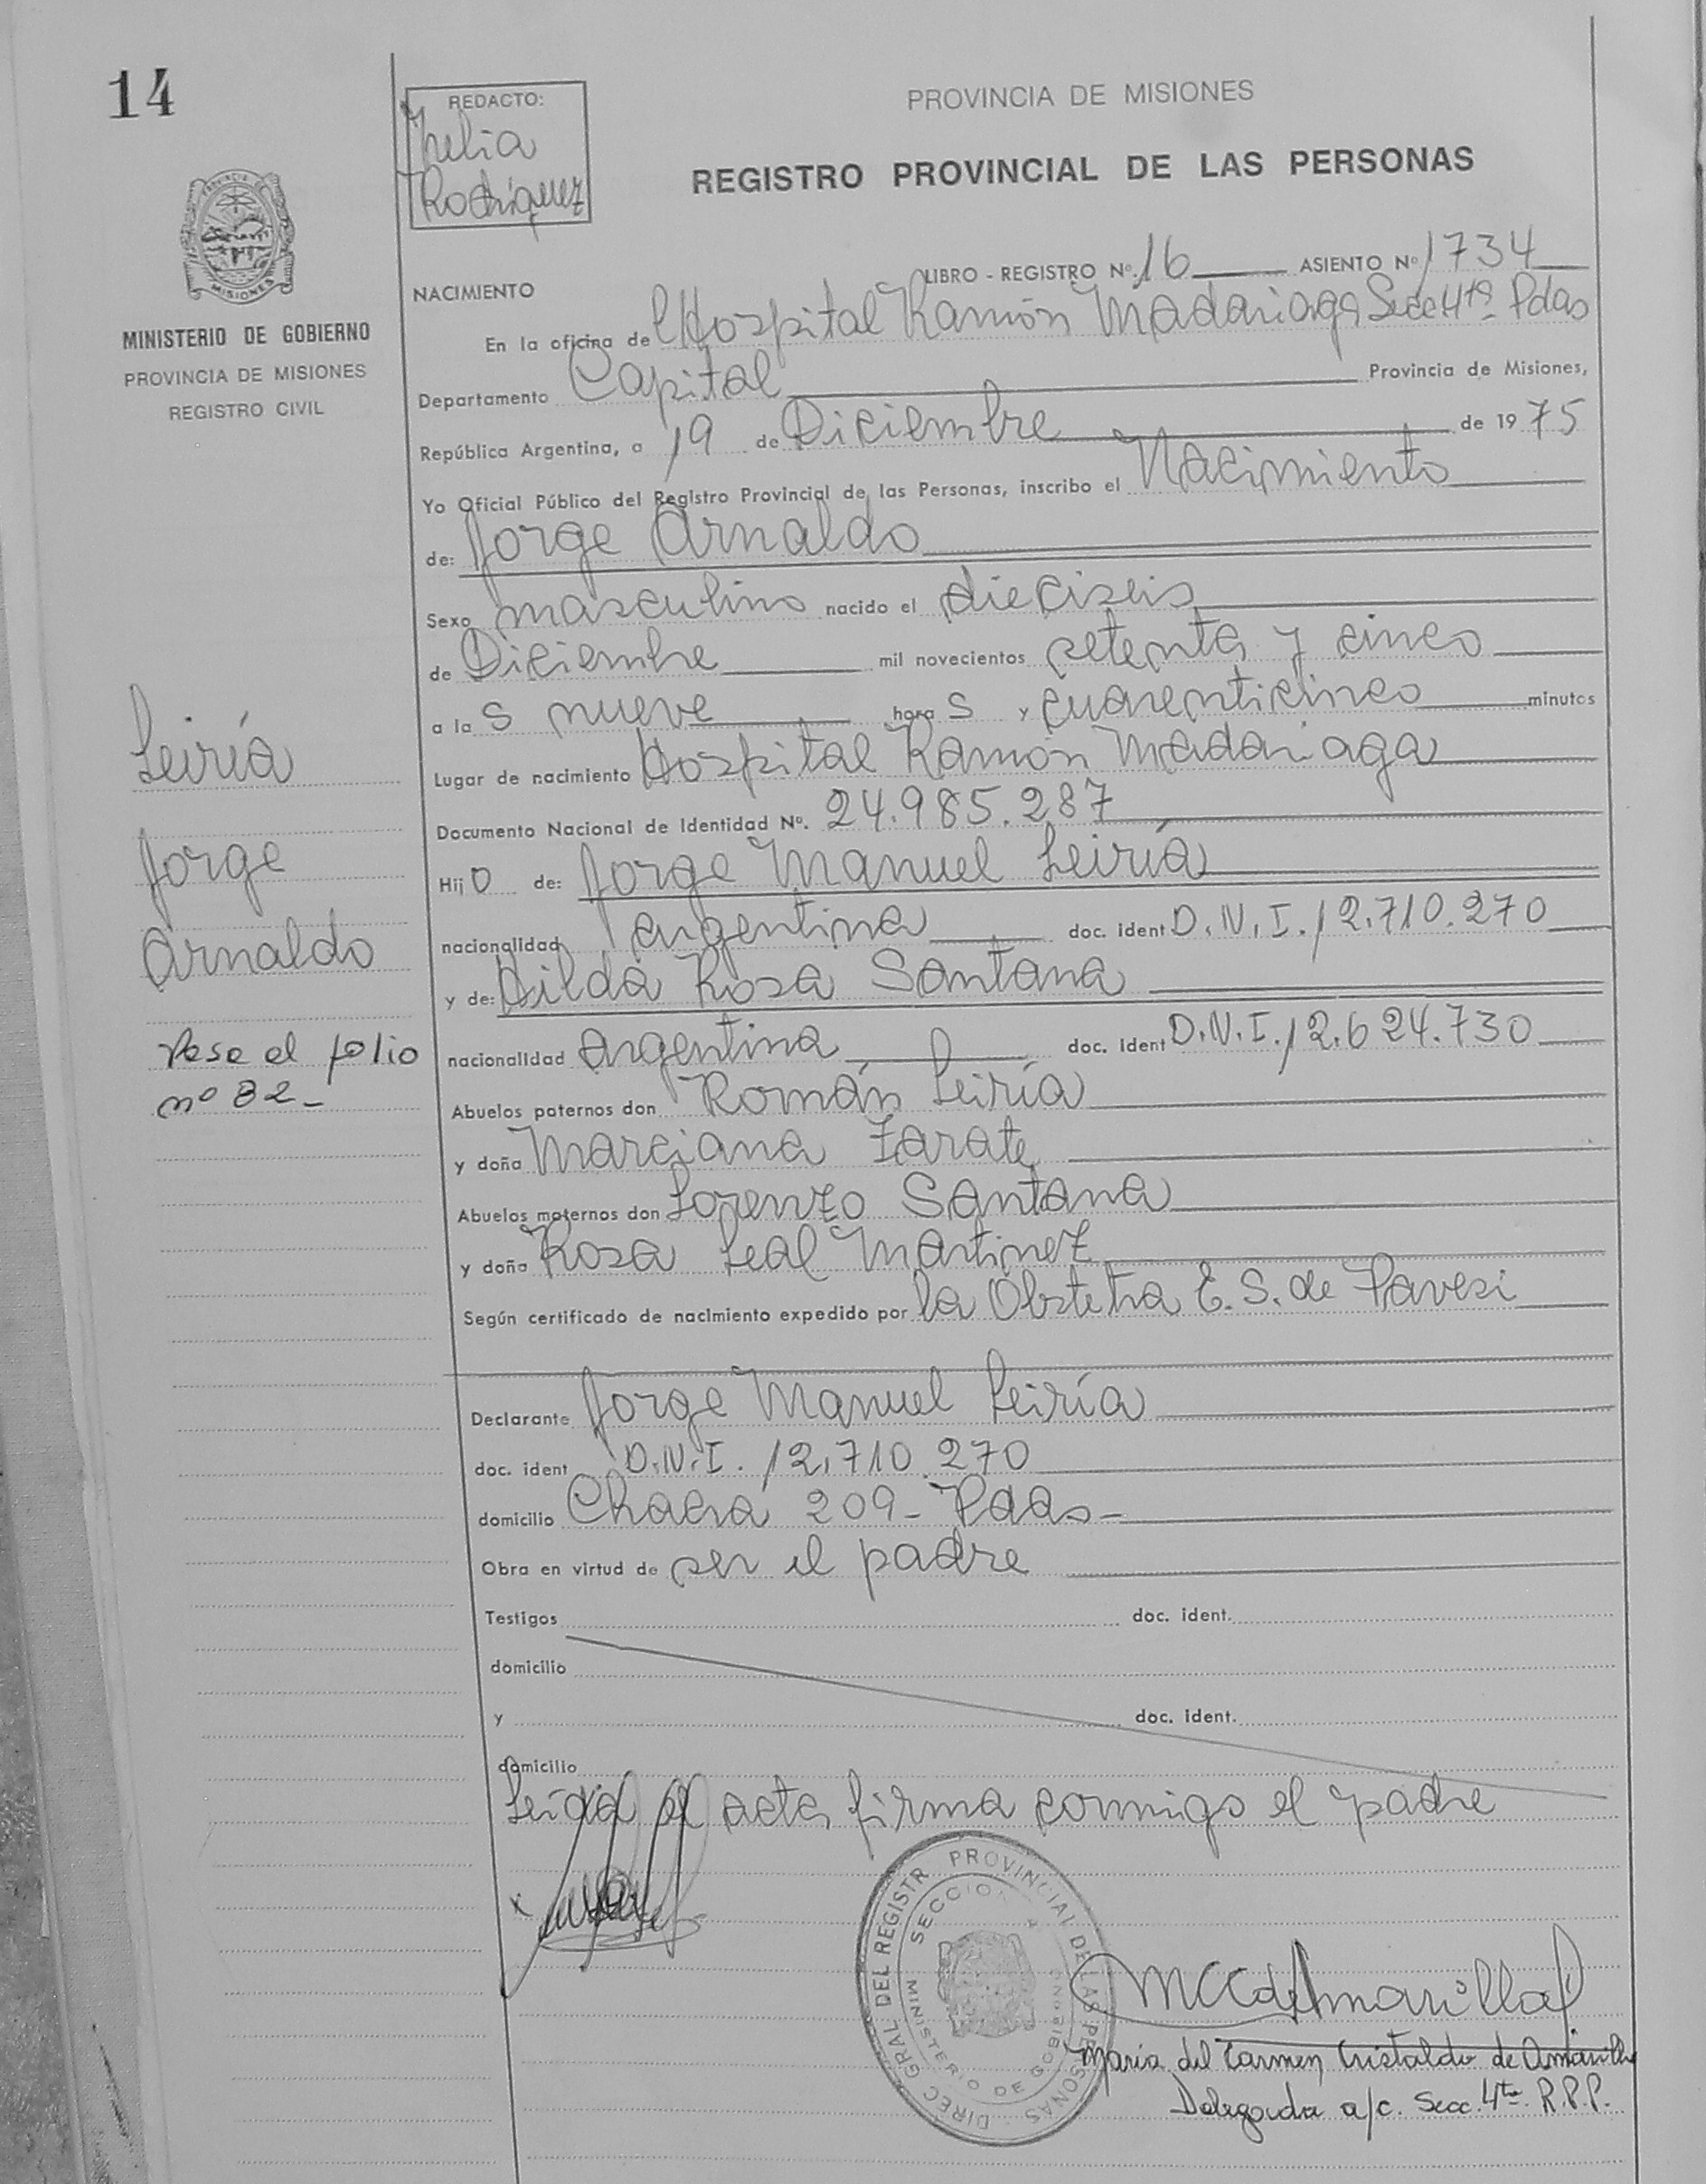 14
REDACTO:
Rodríguez
PROVINCIA DE MISIONES
REGISTRO PROVINCIAL DE LAS PERSONAS
MISIONES
MINISTERIO DE GOBIERNO
PROVINCIA DE MISIONES
REGISTRO CIVIL
LIBRO - REGISTRO Nº. 16 ASIENTO Nº 1734
NACIMIENTO
En la oficina de l Hospital Ramón Madariaga Secc 4ta Pdas
Departamento Capital Provincia de Misiones,
República Argentina, a 19 de Diciembre de 1975
Yo Oficial Público del Registro Provincial de las Personas, inscribo el Nacimiento
de: Jorge Arnaldo
Sexo masculino nacido el dieciseis
de Diciembre mil novecientos setenta y cinco
a la s nueve hora s y cuarenticinco minutos
Lugar de nacimiento Hospital Ramón Madariaga
Documento Nacional de Identidad Nº. 24.985.287
Hij o de: Jorge Manuel Leiría
nacionalidad argentina doc. ident D.N.I. 12.710.270
y de: Hilda Rosa Santana
nacionalidad argentina doc. ident D.N.I. 12.624.730
Abuelos paternos don Román Leiría
y doña Marciana Zarate
Abuelos maternos don Lorenzo Santana
y doña Rosa Leal Martinez
Según certificado de nacimiento expedido por la Obstetra E. S. de Pavesi
Declarante Jorge Manuel Leiría
doc. ident D.N.I. 12.710.270
domicilio Chacra 209- Pdas-
Obra en virtud de ser el padre
Testigos doc. ident.
domicilio
y doc. ident.
domicilio
Leída el acta firma conmigo el padre
Leiría
Jorge
Arnaldo
Pase al folio
nº 82-
DIREC GRAL DEL REGISTR PROVINCIAL DE LAS PERSONAS
SECCION 4
MINISTERIO DE GOBIERNO
MCCdeAmarilla
Maria del Carmen Cristaldo de Amarilla
Delegada a/c. Secc. 4ta R.P.P.